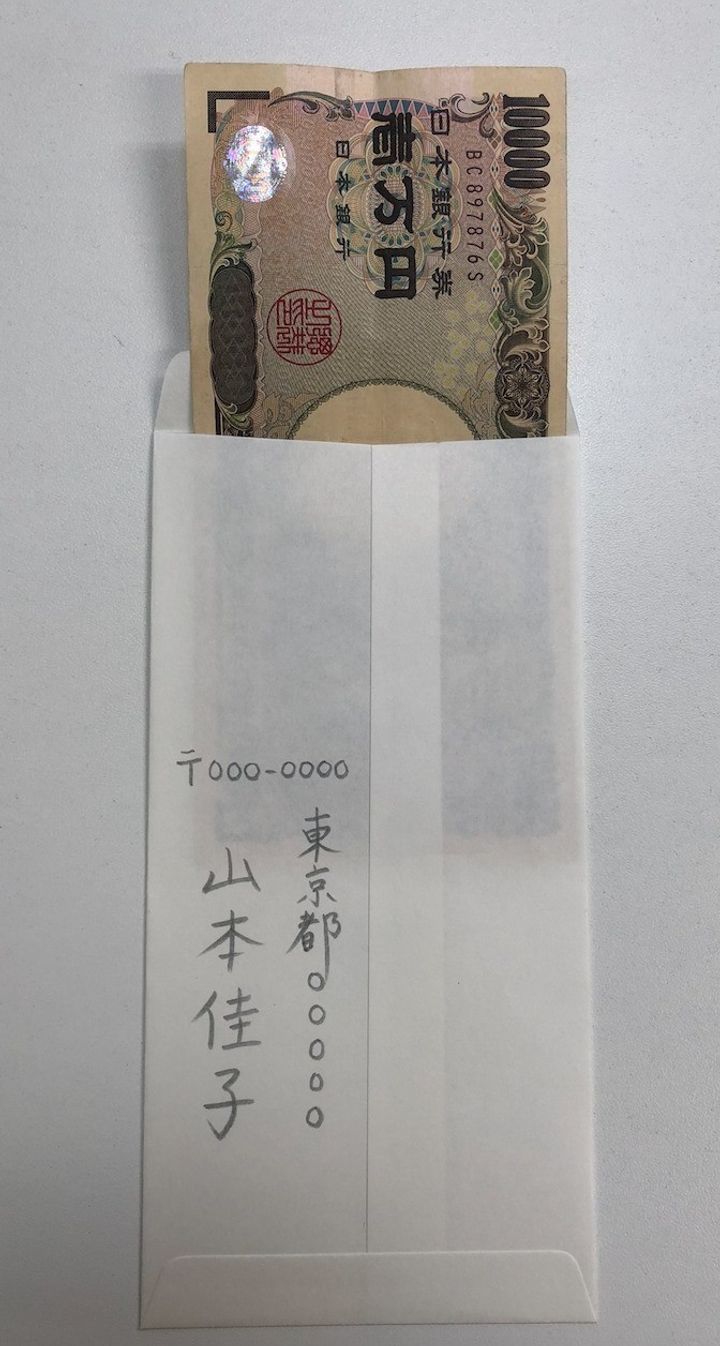 10000
BC897876S
日本銀行券
壱万円
日本銀行
〒000-0000
東京都○○○○○
山本佳子